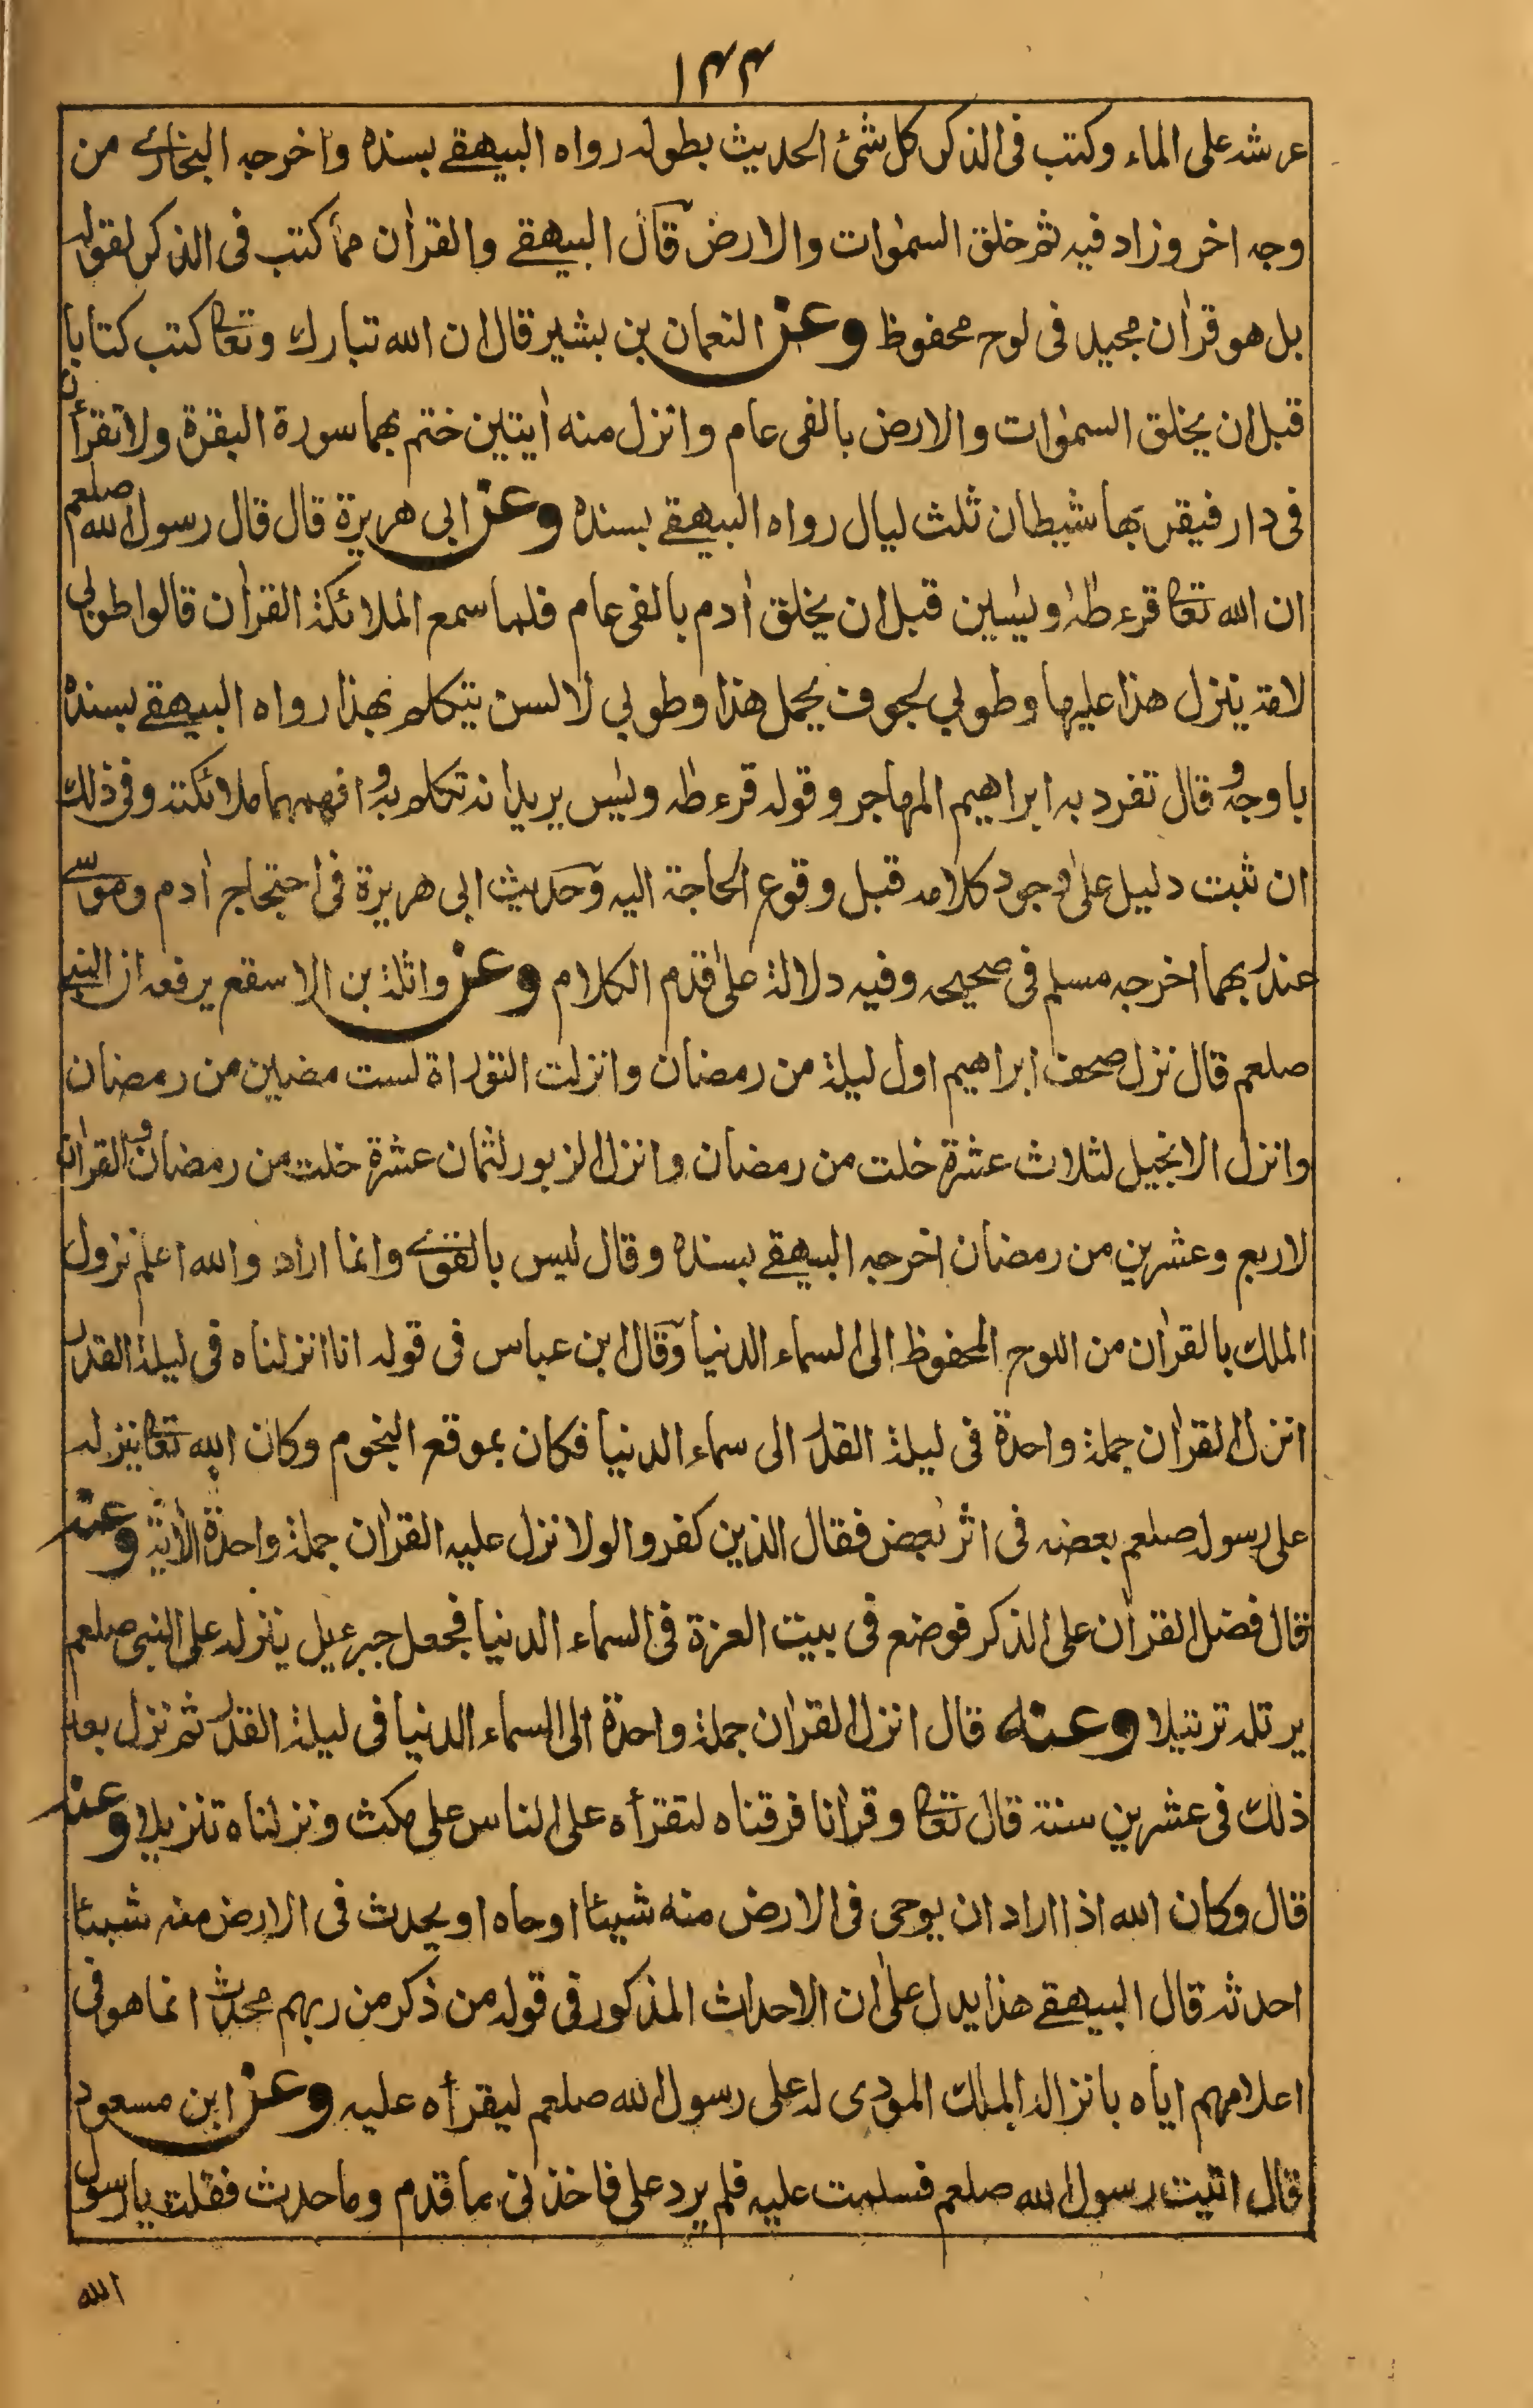 ١٤٤
عرشه على الماء وكتب فى الذكر كل شئ الحديث بطوله رواه البيهقے بسنده واخرجه البخارے من
وجه اخر وزاد فيه ثم خلق السمٰوات والارض قال البيهقے والقراٰن مما كتب فى الذكر لقوله
بل هو قراٰن مجيد فى لوح محفوظ وعن النعمان بن بشير قال ان الله تبارك وتعا كتب كتابا
قبل ان يخلق السمٰوات والارض بالفى عام وانزل منه اٰيتين ختم بهما سورة البقرة ولا تقرأن
فى دار فيقربها شيطان ثلث ليال رواه البيهقے بسنده وعن ابى هريرة قال قال رسول الله صلعم
ان الله تعا قرء طٰهٰ ويٰسين قبل ان يخلق اٰدم بالفى عام فلما سمع الملائكة القراٰن قالوا طوبى
لامة ينزل هذا عليها وطوبي لجوف يحمل هذا وطوبي لالسن يتكلم بهذا رواه البيهقے بسنده
باوجه وقال تفرد به ابراهيم المهاجر وقوله قرء طه ويٰس يريد انه تكلم به وافهمهما ملائكته وفى ذلك
ان ثبت دليل علىٰ وجود كلامه قبل وقوع الحاجة اليه وحديث ابى هريرة فى احتجاج اٰدم وموسے
عند ربهما اخرجه مسلم فى صحيحه وفيه دلالة علىٰ قدم الكلام وعن واثلة بن الاسقع يرفعه ان النبے
صلعم قال نزل صحف ابراهيم اول ليلة من رمضان وانزلت التوراة لست مضين من رمضان
وانزل الانجيل لثلاث عشرة خلت من رمضان وانزل الزبور لثمان عشرة خلت من رمضان والقراٰن
لاربع وعشرين من رمضان اخرجه البيهقے بسنده وقال ليس بالقوے وانما اراد والله اعلم نزول
الملك بالقراٰن من اللوح المحفوظ الى السماء الدنيا وقال ابن عباس فى قوله انا انزلناه فى ليلة القدر
انزل القراٰن جملة واحدة فى ليلة القدر الى سماء الدنيا فكان بموقع النجوم وكان الله تعا ينزله
على رسوله صلعم بعضه فى اثر بعض فقال الذين كفروا لولا نزل عليه القراٰن جملة واحدة الاٰية وعنه
قال فصل القراٰن على الذكر فوضع فى بيت العزة فى السماء الدنيا فجعل جبرءيل ينزله على النبى صلعم
يرتله ترتيلا وعنه قال انزل القراٰن جملة واحدة الى السماء الدنيا فى ليلة القدر ثم نزل بعد
ذلك فى عشرين سنة قال تعا وقراٰنا فرقناه لتقرأه على الناس على مكث ونزلناه تنزيلا وعنه
قال وكان الله اذا اراد ان يوحى فى الارض منه شيئا اوحاه او يحدث فى الارض منه شيئا
احدثه قال البيهقے هذا يدل علىٰ ان الاحداث المذكور فى قوله من ذكر من ربهم محدث انما هو فى
اعلامهم اياه بانزاله الملك المودى له على رسول الله صلعم ليقرأه عليه وعن ابن مسعود
قال اتيت رسول الله صلعم فسلمت عليه فلم يرد على فاخذنى ما قدم وما حدث فقلت يا رسول
الله